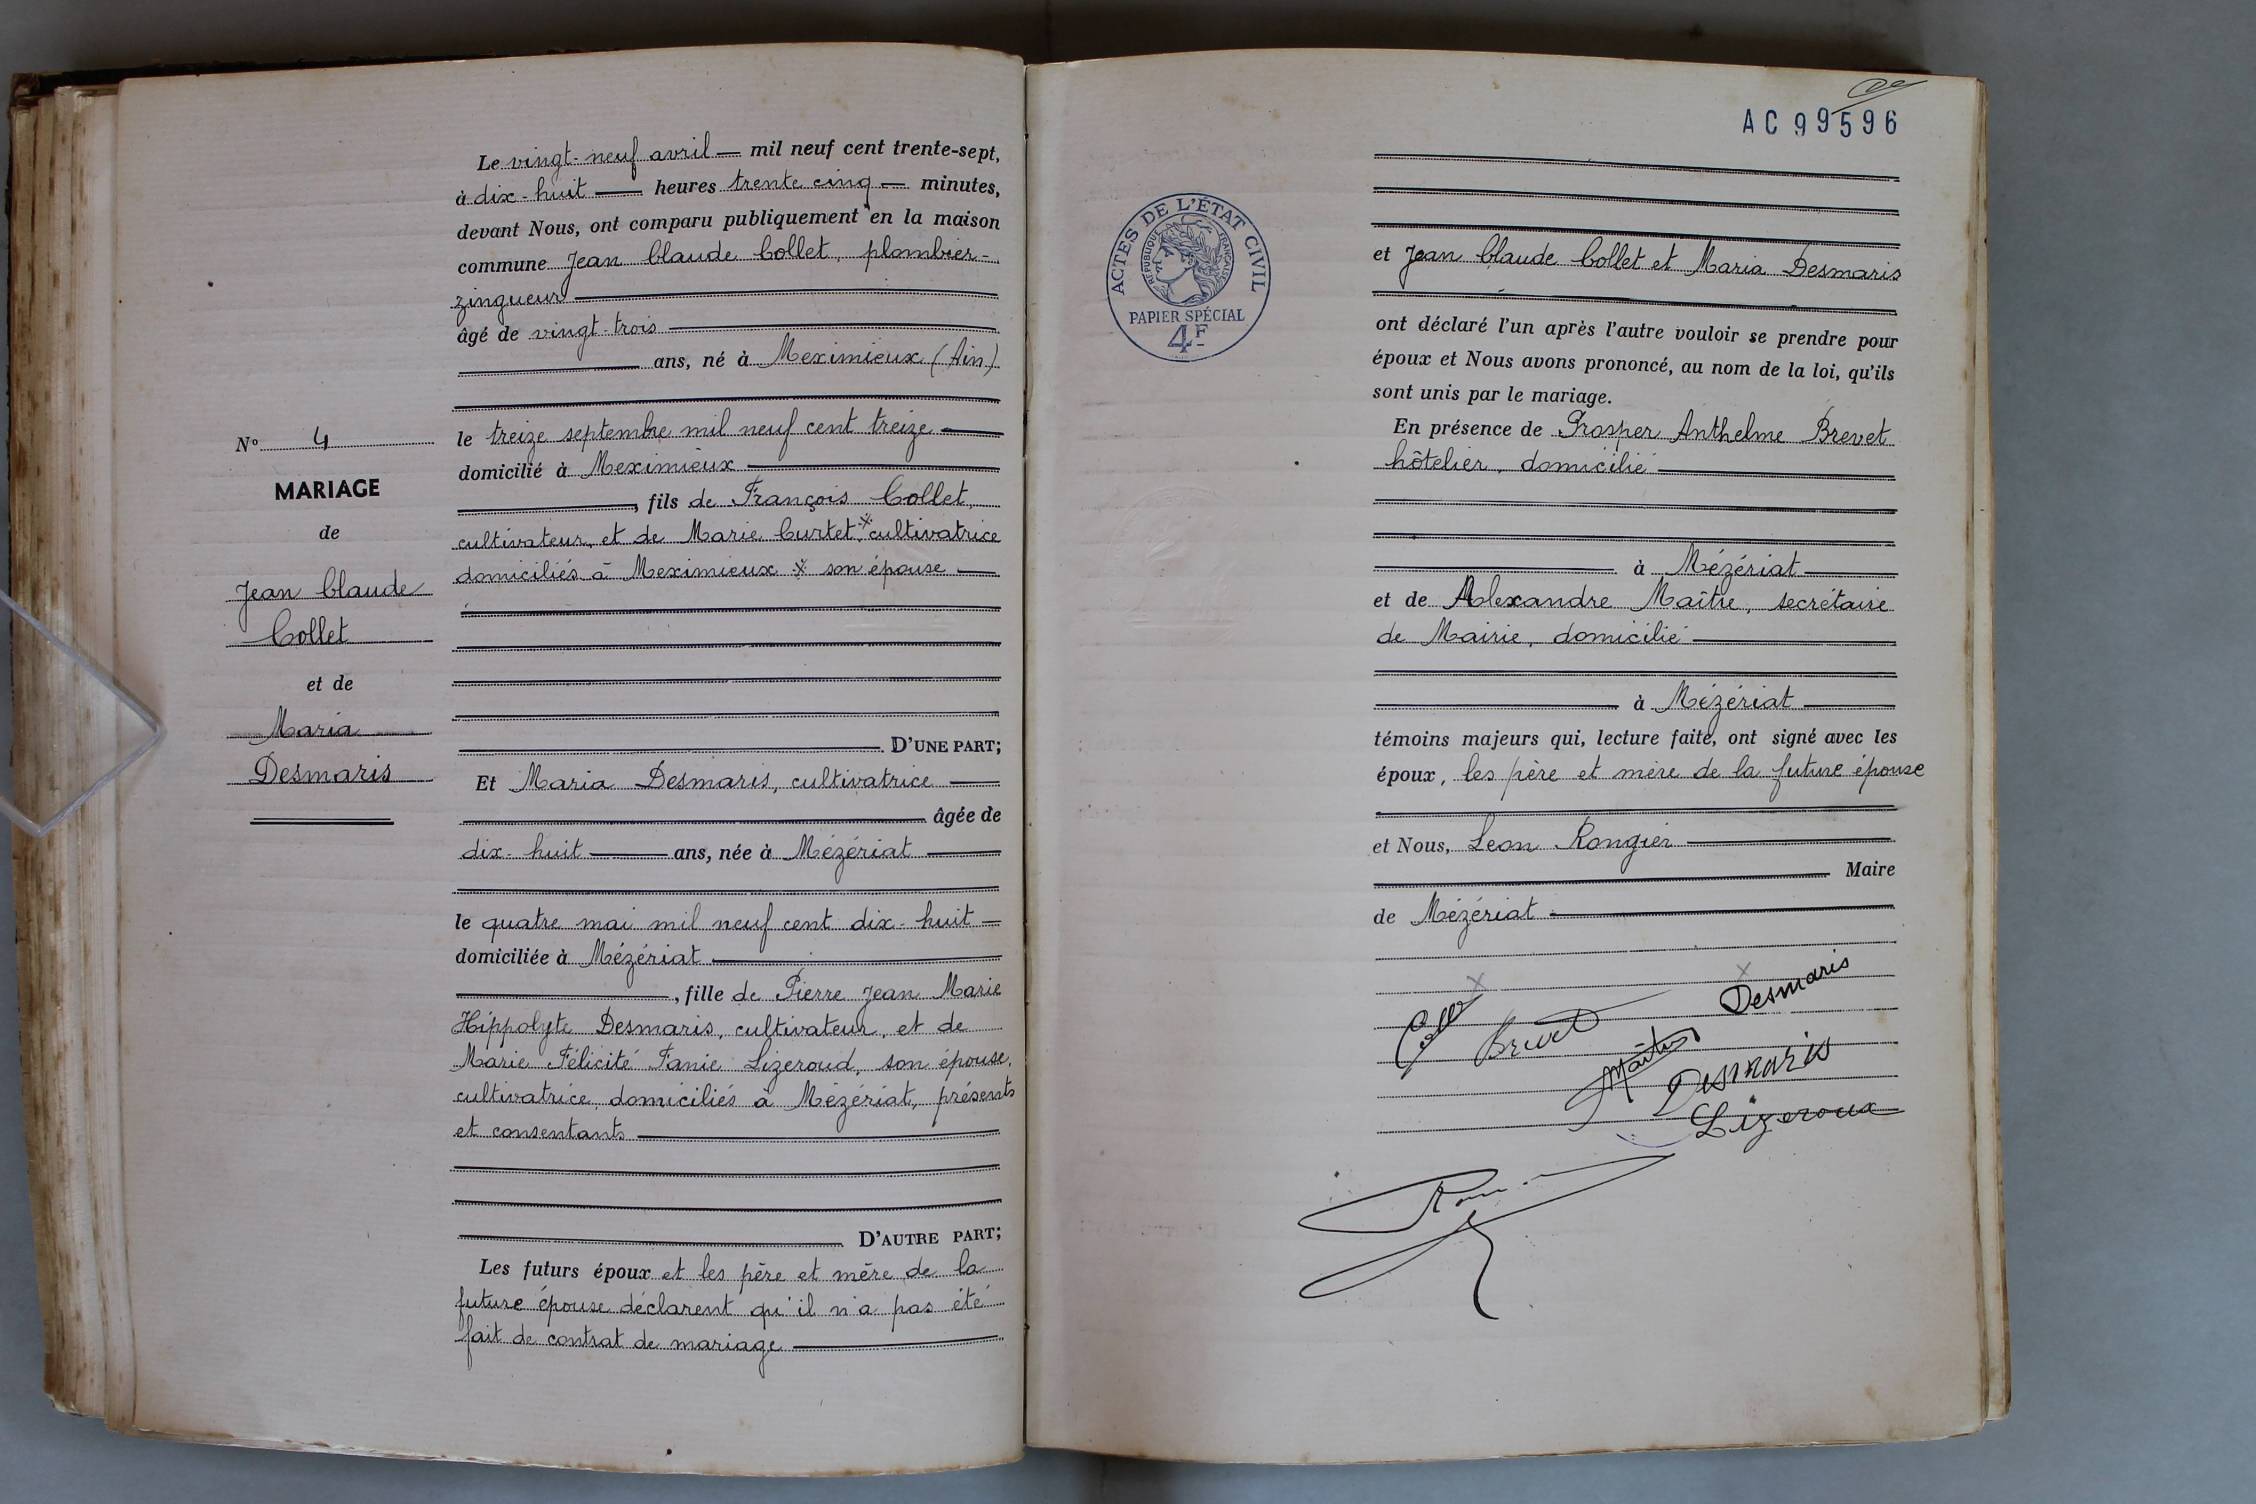 Le vingt-neuf avril mil neuf cent trente-sept,
à dix-huit heures trente cinq minutes,
devant Nous, ont comparu publiquement en la maison
commune Jean Claude Collet, plombier-
zingueur
âgé de vingt-trois
ans, né à Meximieux (Ain)
le treize septembre mil neuf cent treize
domicilié à Meximieux
, fils de François Collet,
cultivateur, et de Marie Curtet, * cultivatrice
domiciliés à Meximieux * son épouse
D'UNE PART;
Et Maria Desmaris, cultivatrice
âgée de
dix-huit ans, née à Mézériat
le quatre mai mil neuf cent dix-huit
domiciliée à Mézériat
, fille de Pierre Jean Marie
Hippolyte Desmaris, cultivateur, et de
Marie Félicité Fanie Lizeroud, son épouse,
cultivatrice, domiciliés à Mézériat, présents
et consentants
D'AUTRE PART;
Les futurs époux et les père et mère de la
future épouse déclarent qu'il n'a pas été
fait de contrat de mariage
N° 4
MARIAGE
de
Jean Claude
Collet
et de
Maria
Desmaris
AC 99596
ACTES DE L'ÉTAT CIVIL
RÉPUBLIQUE FRANÇAISE
PAPIER SPÉCIAL
4F
et Jean Claude Collet et Maria Desmaris
ont déclaré l'un après l'autre vouloir se prendre pour
époux et Nous avons prononcé, au nom de la loi, qu'ils
sont unis par le mariage.
En présence de Prosper Anthelme Brevet
hôtelier, domicilié
à Mézériat
et de Alexandre Maître, secrétaire
de Mairie, domicilié
à Mézériat
témoins majeurs qui, lecture faite, ont signé avec les
époux, les père et mère de la future épouse
et Nous, Leon Rongier
Maire
de Mézériat
Desmaris
Brevet
Maître
Desmaris
Lizeroux